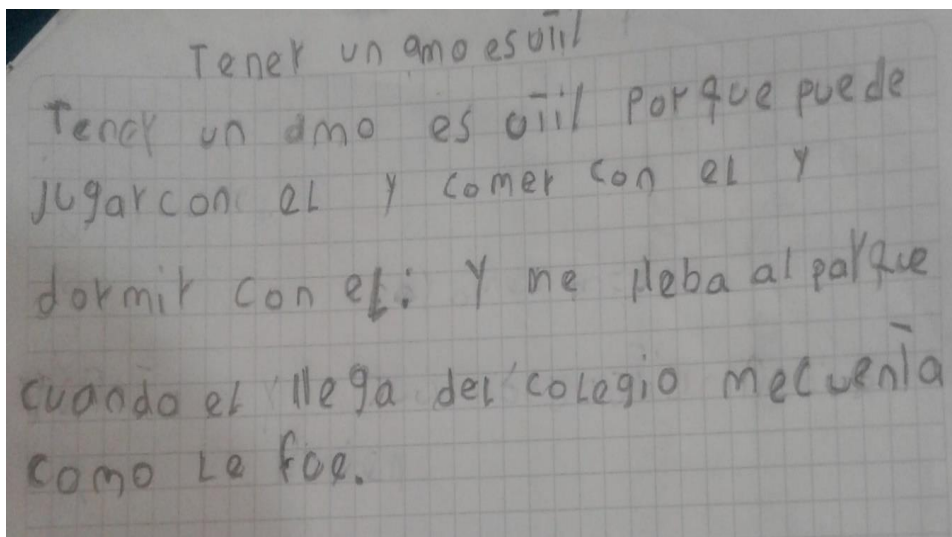 Tener un amo es util
Tener un amo es util porque puede
jugar con el y comer con el y
dormir con el: y me lleba al parque
cuando el llega del colegio me cuenta
como le fue.